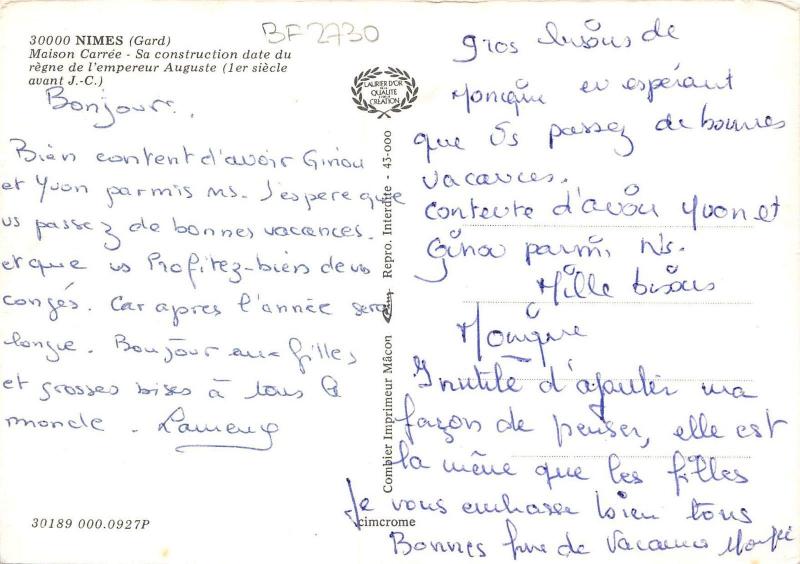 BF2730
30000 NIMES (Gard)
Maison Carrée - Sa construction date du
règne de l'empereur Auguste (1er siècle
avant J.-C.)
Bonjour.
Bien content d'avoir Ginou
et Yvon parmis ns. J'espere que
vs passez de bonnes vacances.
et que vs Profitez-bien de vos
congés. Car apres l'année sera
longue. Bonjour aux filles
et grosses bises à tous le
monde.
30189 000.0927P
LAURIER D'OR
DE LA
QUALITÉ
CRÉATION
Combier Imprimeur Mâcon Repro. Interdite - 43-000
cimcrome
gros bisous de
Monique en espérant
que Vs passez de bonnes
vacances.
contente d'avoir Yvon et
Ginou parmi Ns.
Mille bisous
Monique
Inutile d'ajouter ma
façon de penser, elle est
la même que les filles
Je vous embrasse bien tous
Bonnes fin de Vacances